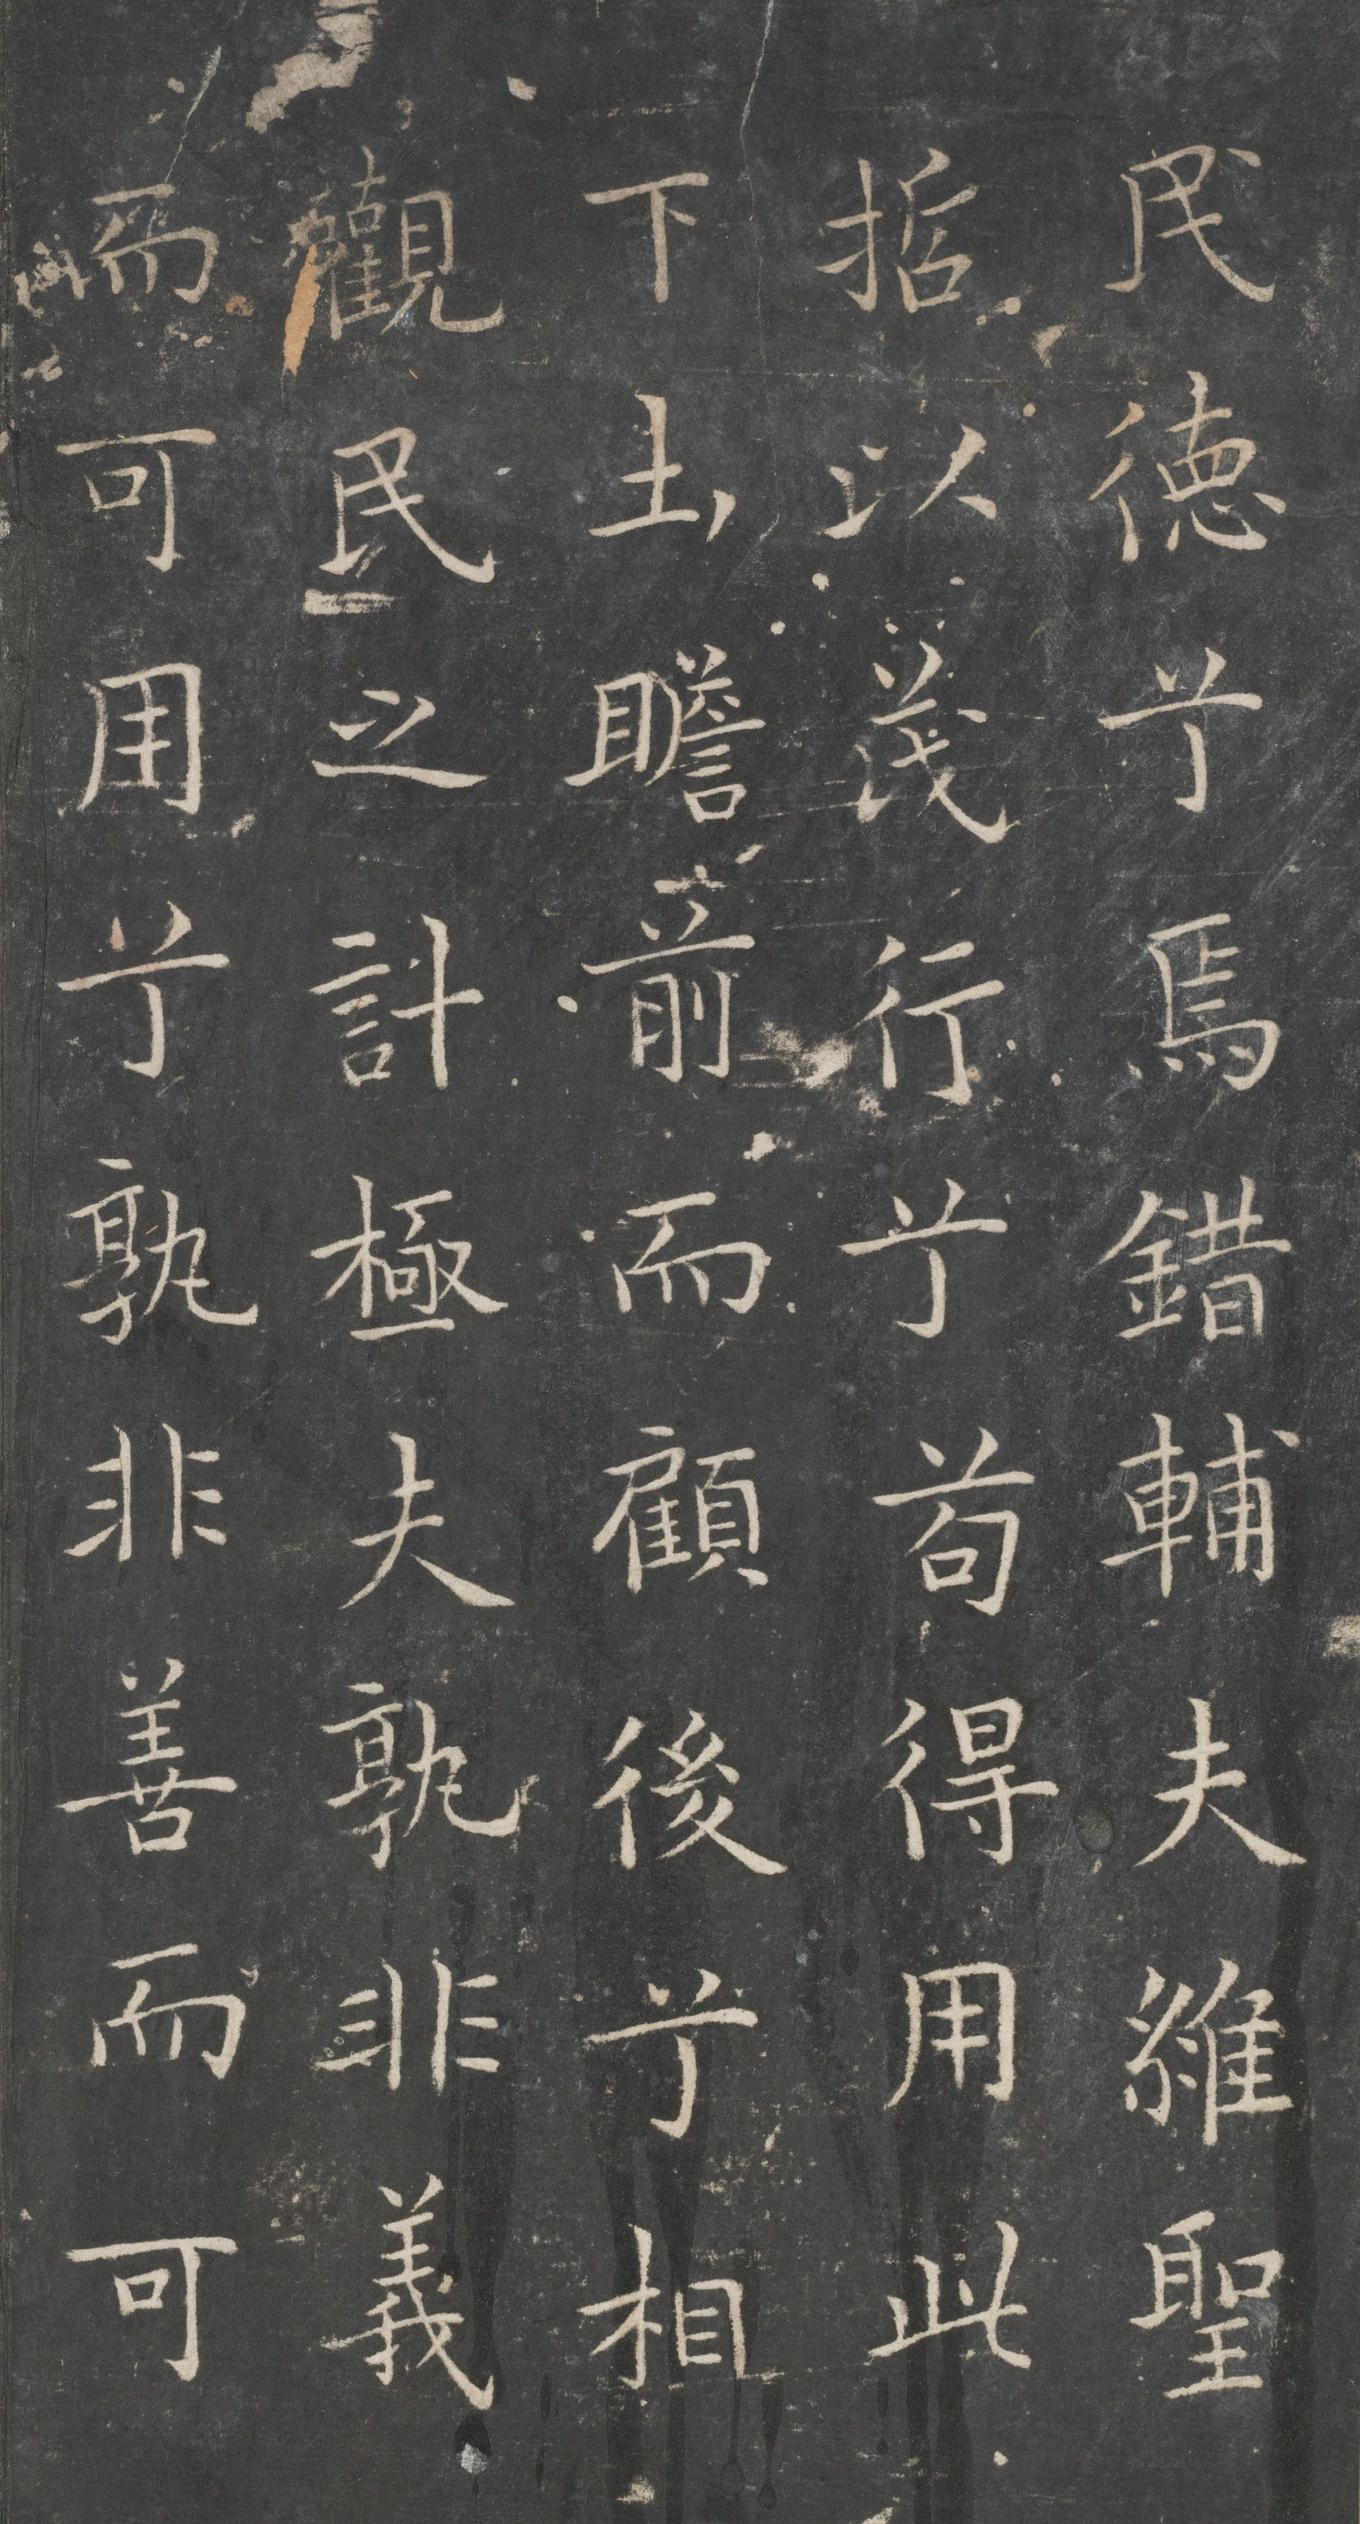 民德兮焉錯輔夫維聖
哲以茂行兮苟得用此
下土瞻前而顧後兮相
觀民之計極夫孰非義
而可用兮孰非善而可